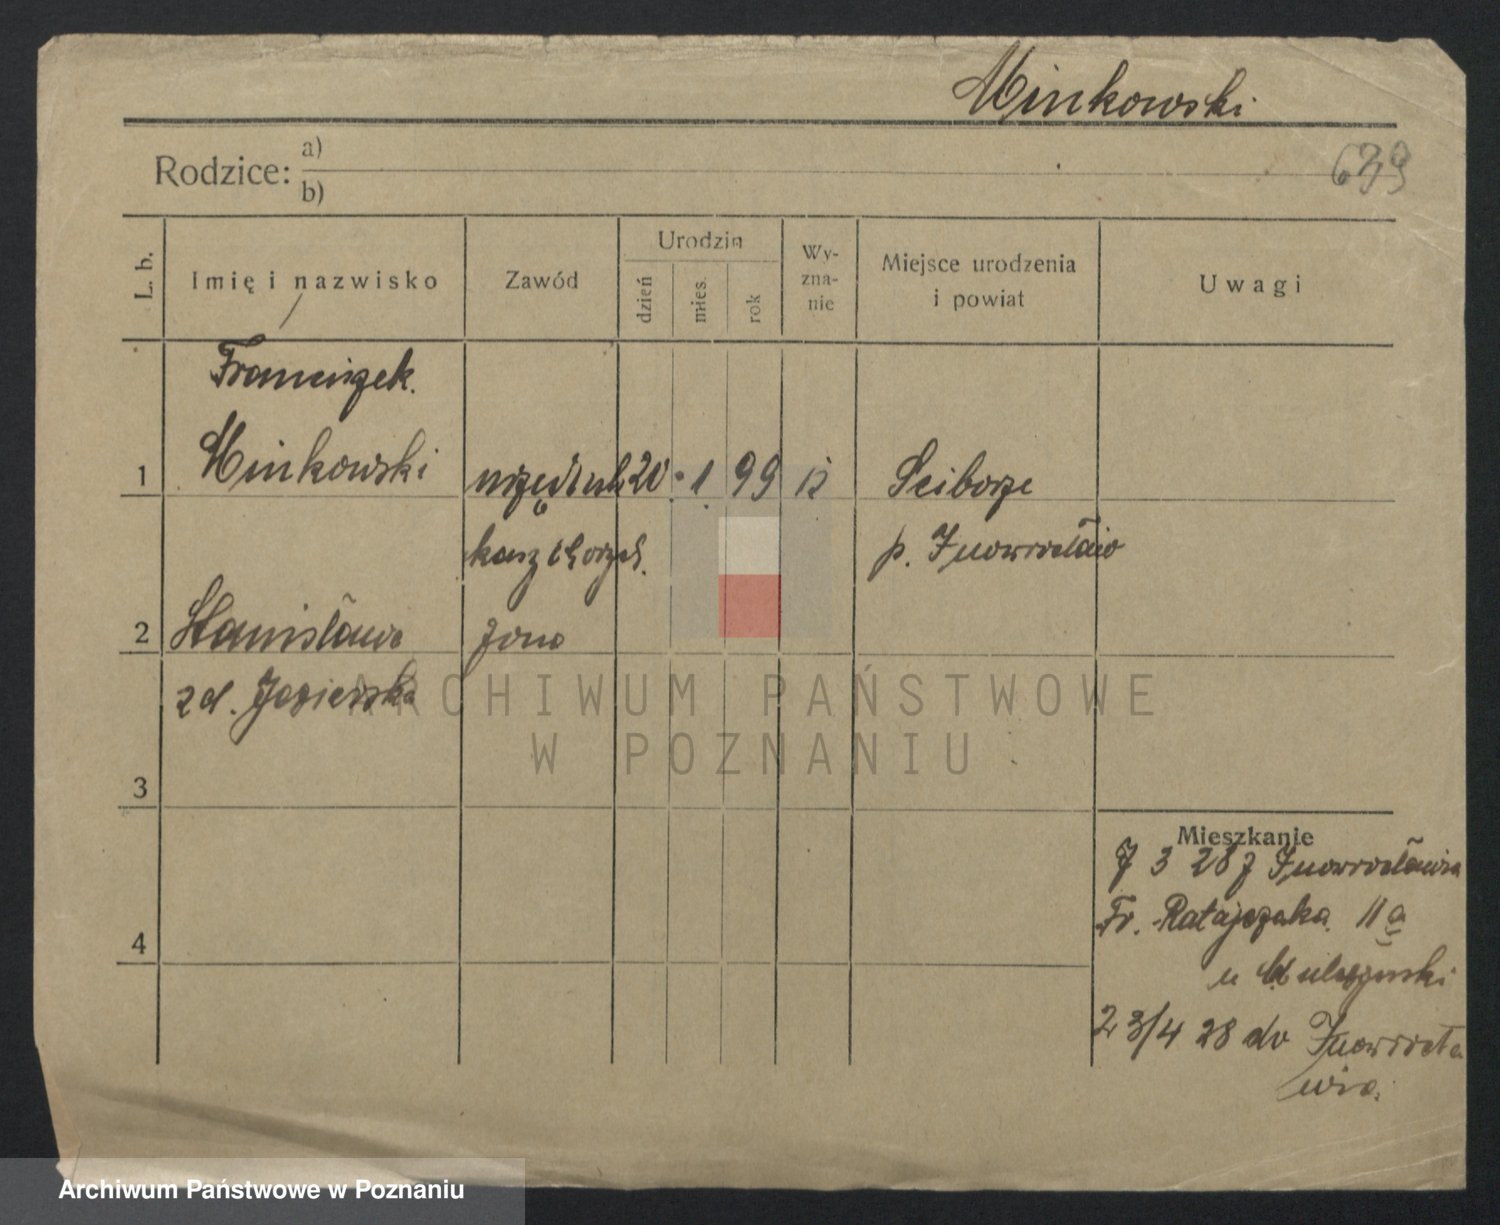 Minkowski
639
Rodzice: a)
b)
L. b.
Imię i nazwisko
Zawód
Urodzin
dzień
mies.
rok
Wy-
zna-
nie
Miejsce urodzenia
i powiat
Uwagi
Franciszek
1 Minkowski urzędnik 20 1 99 Sciborze
p. Inowrocław
2 Stanisława żona
zd. Jezierska
3
4
Mieszkanie
7 3 28 z Inowrocławia
Fr. Ratajczaka 11a
u
23/4 28 do Inowrocła
wia.
ARCHIWUM PAŃSTWOWE
W POZNANIU
Archiwum Państwowe w Poznaniu